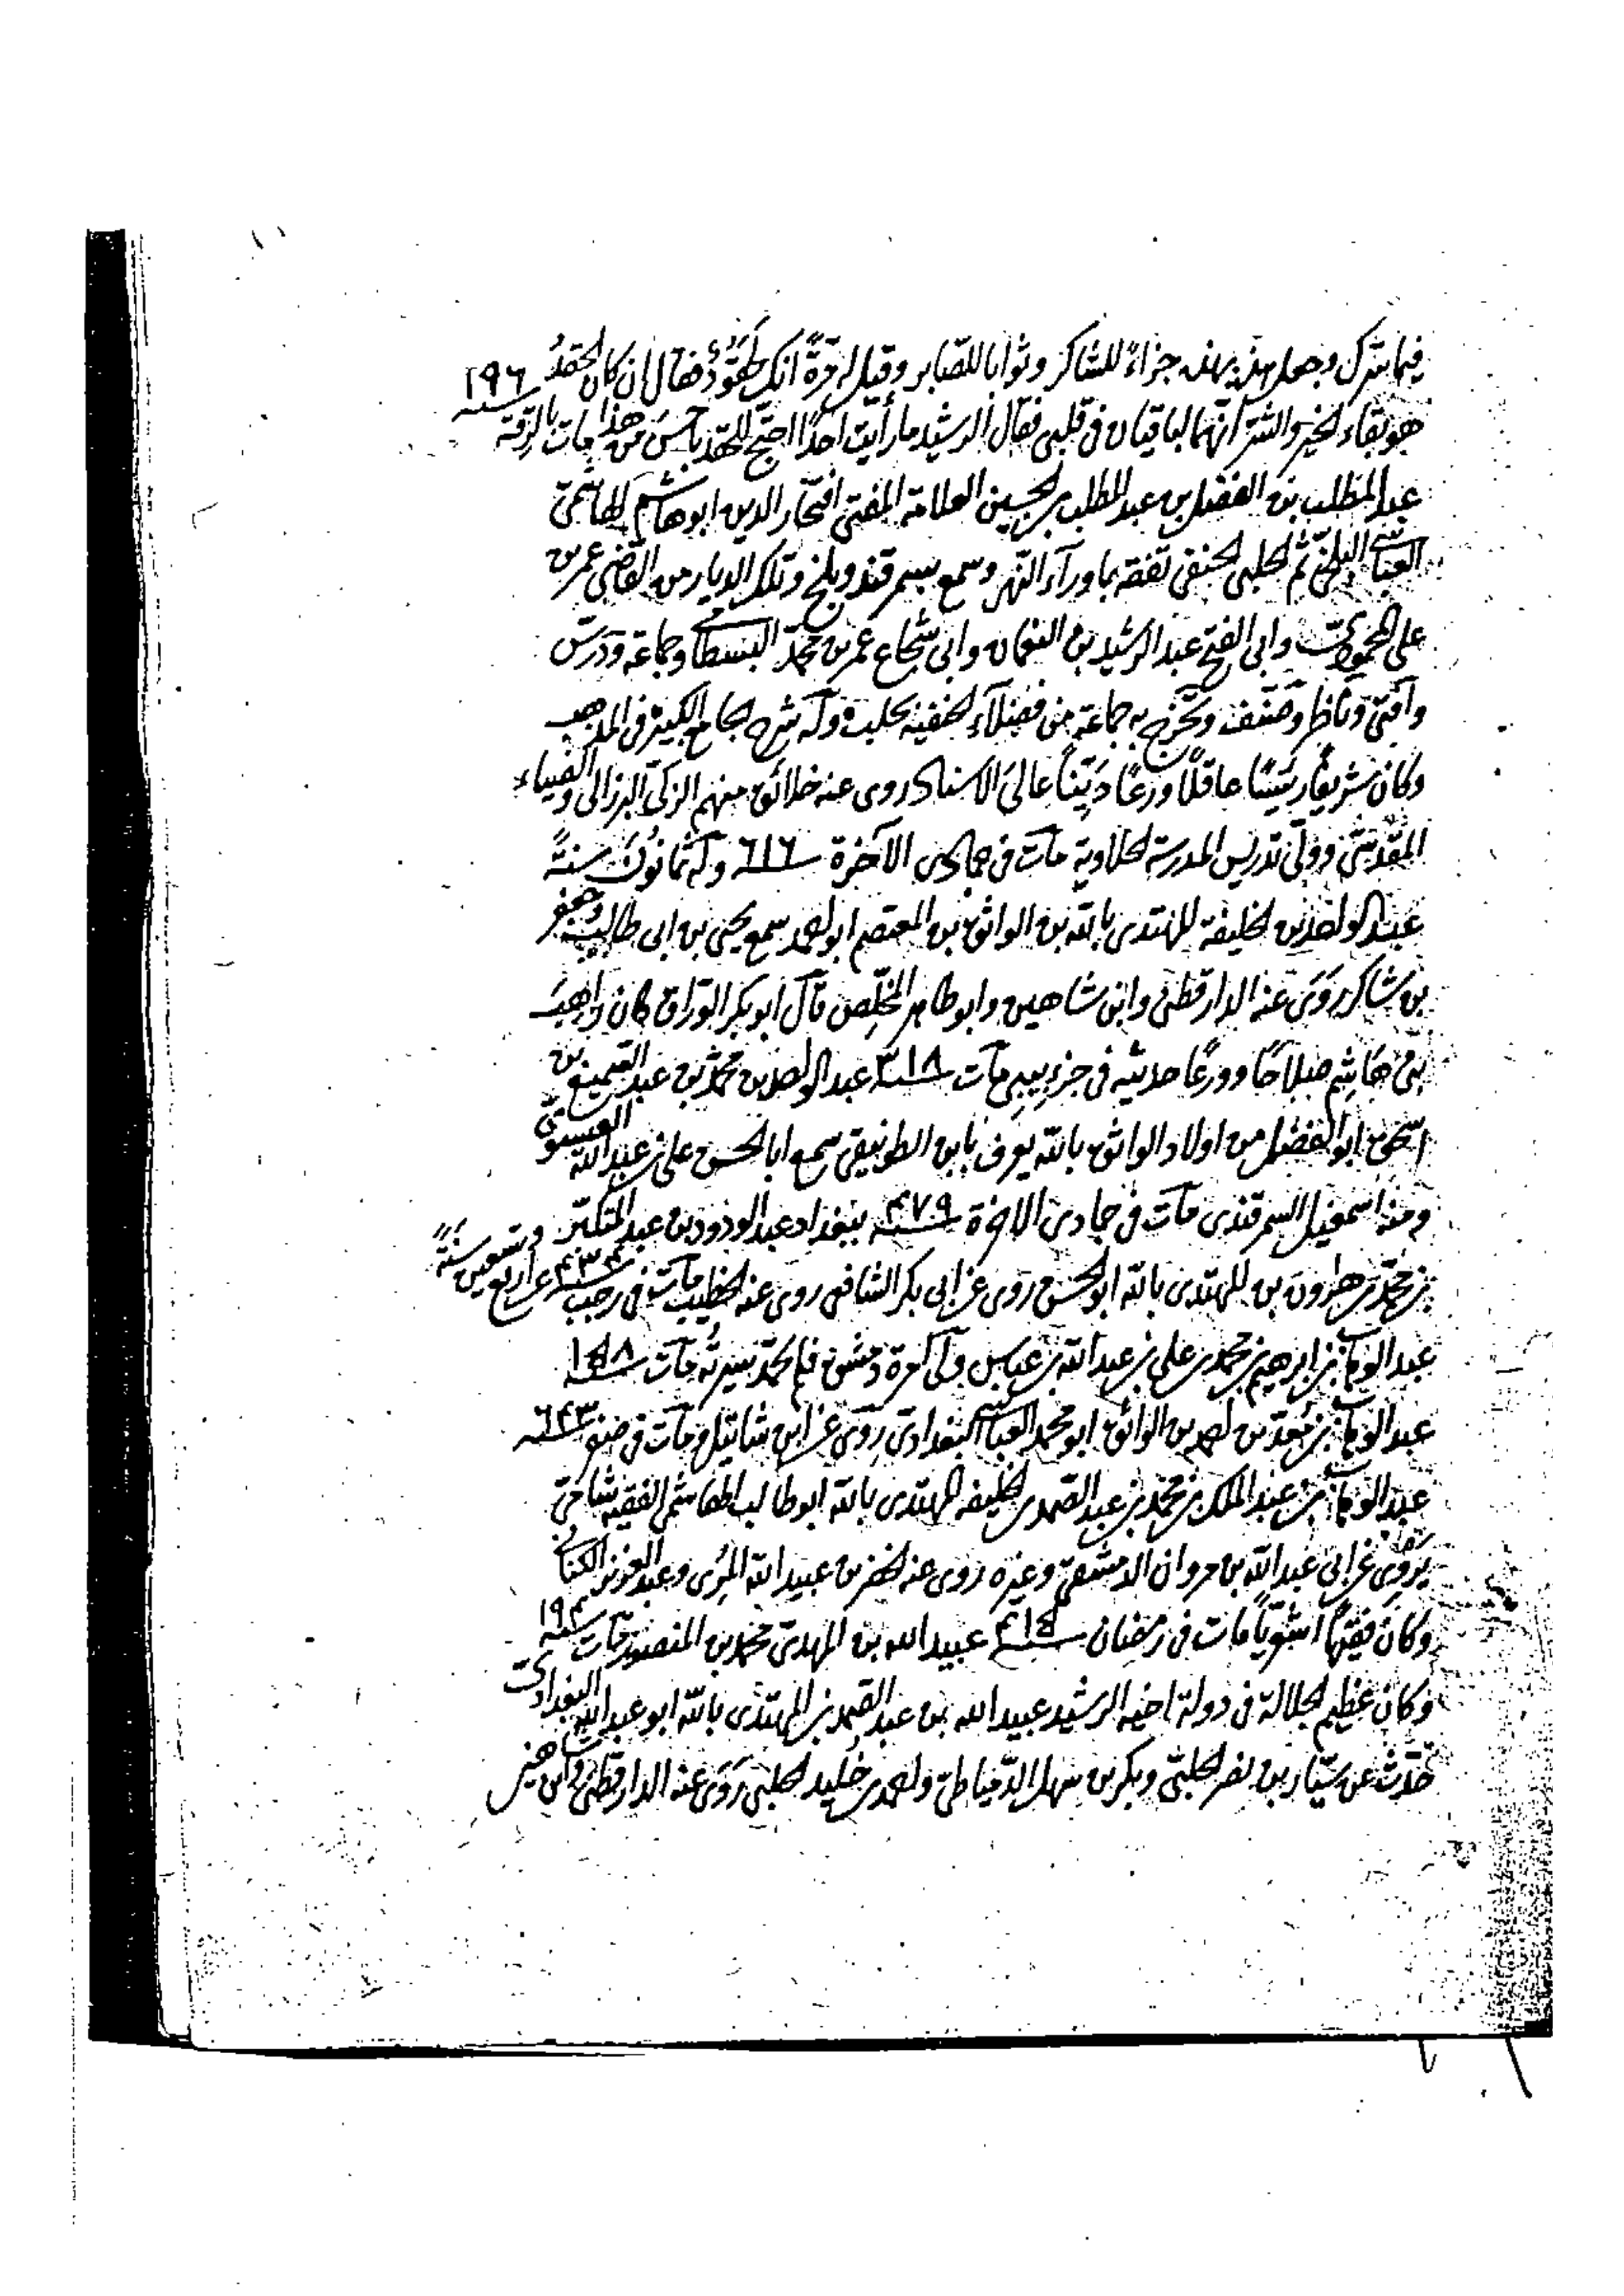 فيما سرك وجعل هذه بهذه جزاءً للشاكر وثوابا للصابر وقيل له مرةً انك لحقودٌ فقال ان كان الحقدُ
هو بقاء الخير والشر انهما لباقيان في قلبي فقال الرشيد ما رأيت احدًا احتج للحقد باحسن من هذا مات بالرقة سنه ١٩٦
عبد المطلب بن الفضل بن عبد المطلب بن الحسين العلامة المفتى افتخار الدين ابو هاشم الهاشمى
العباسي البلخى ثم الحلبى الحنفى تفقه بماورآء النهر وسمع بسمرقند وبلخ وتلك الديار من القاضى عمر بن
على المحمودى وابى الفتح عبد الرشيد بن النعمان وابى شجاع عمر بن محمد البسطامى وجماعة ودرس
وافتى وناظر وصنف وتخرج به جماعة من فضلاء الحنفيه بحلب وله شرح الجامع الكبير فى المذهب
وكان شريفًا رئيسًا عاقلًا ورعًا دينًا عالى الاسناد روى عنه خلائق منهم الزكى البرزالى والضياء
المقدسى وولى تدريس المدرسة الحلاوية مات فى جمادى الآخرة سنه ٦١٦ وله ثمانون سنةً
عبد الواحد بن الخليفة المهتدى بالله بن الواثق بن المعتصم ابو احمد سمع يحيى بن ابى طالب وجعفر
بن شاكر روى عنه الدارقطنى وابن شاهين وابو طاهر المخلص قال ابو بكر الوراق كان راهب
بنى هاشم صلاحًا وورعًا حديثه فى جزء بيبى مات سنه ٣١٨ عبد الواحد بن محمد بن عبد السميع بن
اسحق ابو الفضل من اولاد الواثق بالله يعرف بابن الطوابيقى سمع ابا الحسن على بن عبد الله العيسوى
ومنه اسمعيل السمرقندى مات فى جمادى الاخرة سنه ٤٧٩ ببغداد عبد الودود بن عبد المتكبر
بن محمد بن هارون بن المهتدى بالله ابو الحسن روى عن ابى بكر الشافعى روى عنه الخطيب مات فى رجب سنه ٤٣٤ عن اربع وتسعين سنةً
عبد الوهاب بن ابرهيم بن محمد بن على بن عبد الله بن عباس ولى امرة دمشق فلم تحمد سيرته مات سنه ١٥٨
عبد الوهاب بن معد بن احمد بن الواثق ابو محمد العباسي البغدادى روى عن ابن شاتيل ومات فى صفر سنه ٦٤٣
عبد الوهاب بن عبد الملك بن محمد بن عبد الصمد بن الخليفه المهتدى بالله ابو طالب الهاشمى الفقيه شامى
يروى عن ابى عبد الله بن مروان الدمشقى وغيره روى عنه الخضر بن عبيد الله المرى وعبد العزيز الكتانى
وكان فقيهًا اشعريًا مات فى رمضان سنه ٤١٥ عبيد الله بن المهدى محمد بن المنصور مات سنه ١٩٤
وكان عظيم الجلالة فى دولة اخيه الرشيد عبيد الله بن عبد الصمد بن المهتدى بالله ابو عبد الله البغدادى
حدّث عن سيّار بن نصر الحلبى وبكر بن سهل الدمياطى واحمد بن خليد الحلبى روى عنه الدارقطنى وابن شاهين